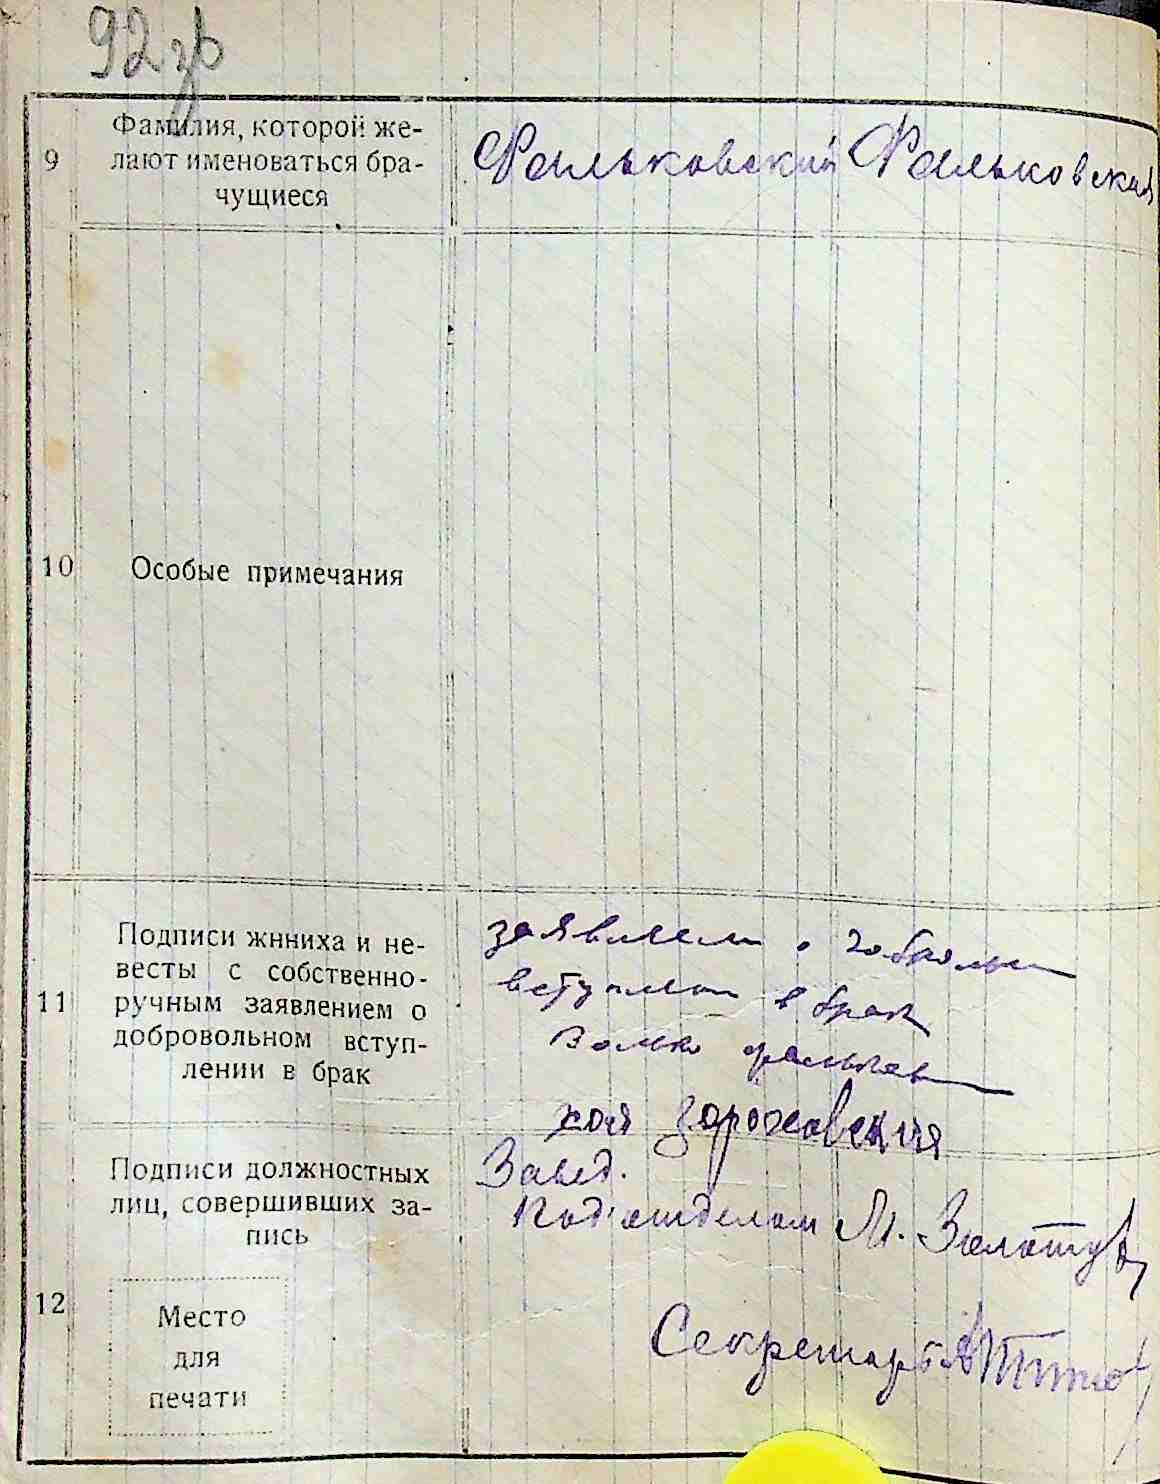 92
9
Фамилия, которой же-
лают именоваться бра-
чущиеся
Фальковский Фальковская
10
Особые примечания
11
Подписи жнниха и не-
весты с собственно-
ручным заявлением о
добровольном вступ-
лении в брак
заявляем о
вступлен в брак
12
Подписи должностных
лиц, совершивших за-
пись
Завед.
Под'отделом М.
Секретарь
Место
для
печати